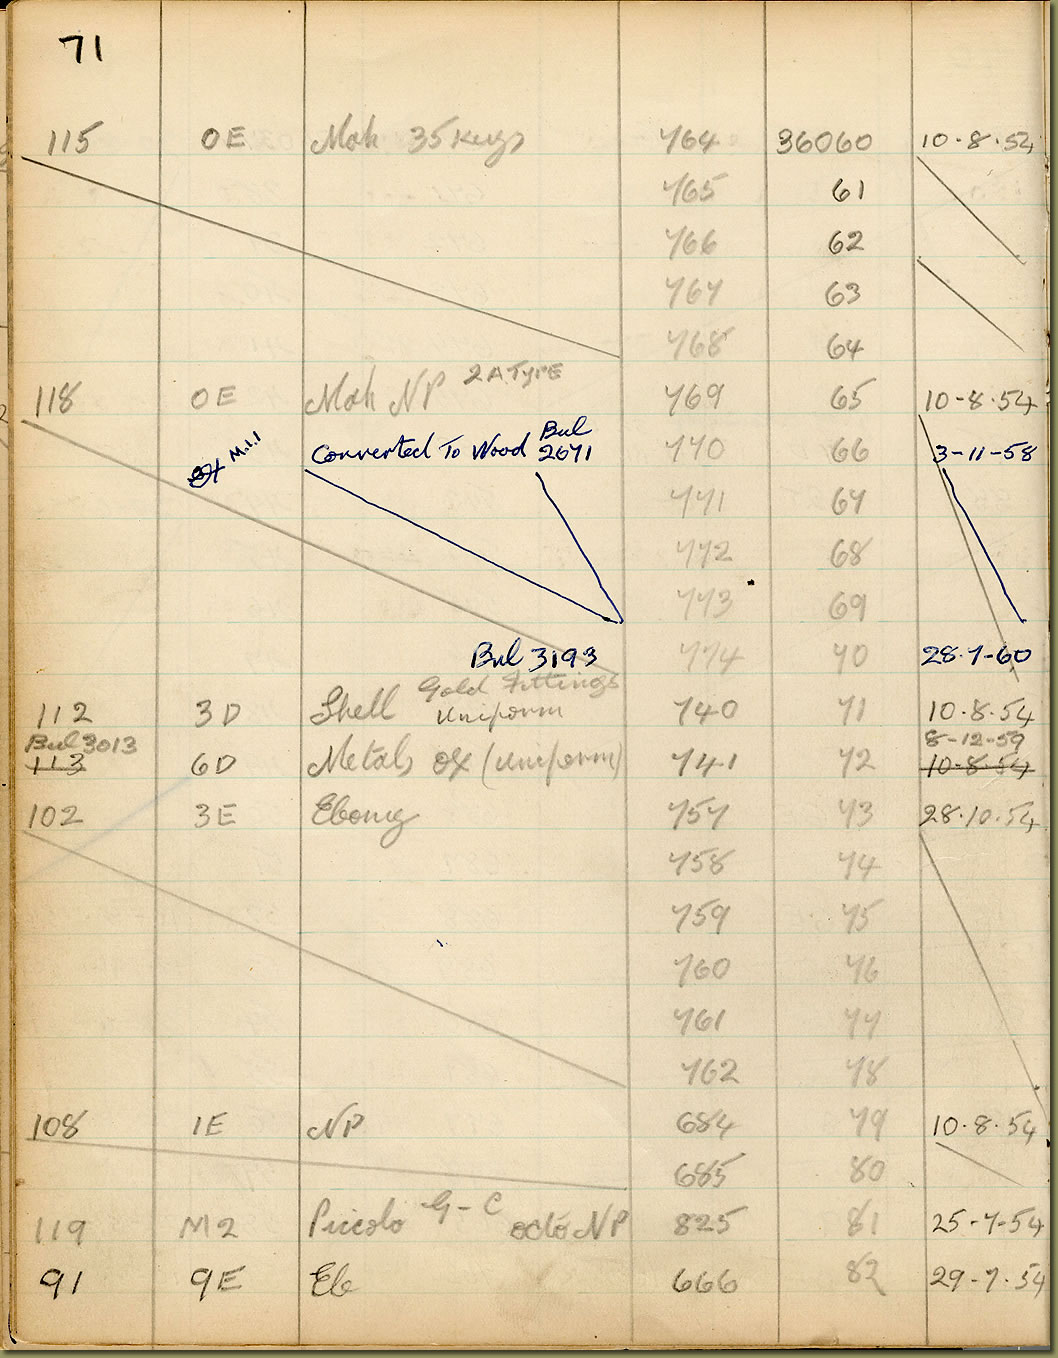 71
115 OE Mah 35 Keys 764 36060 10-8-54
765 61
766 62
767 63
768 64
118 OE Mah NP 2A TYPE 769 65 10-8-54
M.1.1 Converted To Wood Bul 2671 770 66 3-11-58
771 67
772 68
773 69
Bul 3193 774 70 28-7-60
112 3D Shell Gold Fittings Uniform 740 71 10.8.54
Bul 3013 8-12-59
113 6D Metals ox (Uniform) 741 72 10-8-54
102 3E Ebony 757 73 28.10.54
758 74
759 75
760 76
761 77
762 78
108 1E NP 684 79 10.8.54
685 80
119 M2 Piccolo G-C octo NP 825 81 25-7-54
91 9E Eb 666 82 29-7-54